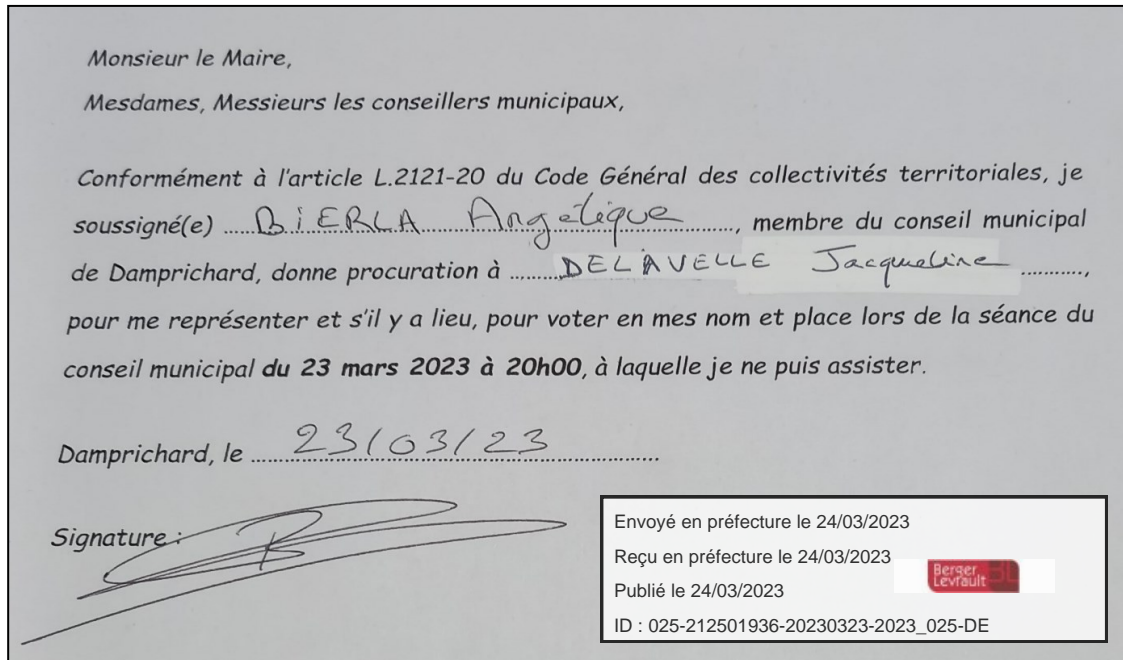 Monsieur le Maire,
Mesdames, Messieurs les conseillers municipaux,
Conformément à l'article L.2121-20 du Code Général des collectivités territoriales, je
soussigné(e) ......BiERLA Angélique............, membre du conseil municipal
de Damprichard, donne procuration à ........DELAVELLE Jacqueline ..........,
pour me représenter et s'il y a lieu, pour voter en mes nom et place lors de la séance du
conseil municipal du 23 mars 2023 à 20h00, à laquelle je ne puis assister.
Damprichard, le ........23/03/23....................
Signature :
Envoyé en préfecture le 24/03/2023
Reçu en préfecture le 24/03/2023
Publié le 24/03/2023
Berger
Levrault
ID : 025-212501936-20230323-2023_025-DE